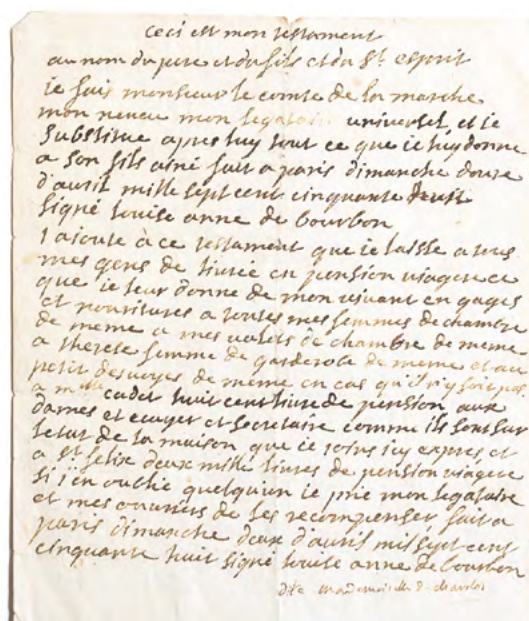 ceci est mon testament
au nom du pere et du fils et du st esprit
je fais monsieur le comte de la marche
mon neveu mon legataire universel et je
substitue apres luy tout ce que je luy donne
a son fils ainé fait a paris dimanche douze
d'avril mille sept cent cinquante
signé louise anne de bourbon
j ajoute à ce testament que je laisse a tous
mes gens de livrée en pension viagere ce
que je leur donne de mon vivant en gages
et nouritures a toutes mes femmes de chambre
de meme a mes valets de chambre de meme
a therese femme de garderobe de meme et au
petit de meme en cas qu'il n'y soit pas
a mlle cadet huit cent livre de pension aux
dames et ecuyer et secretaire comme ils sont sur
letat de la maison que je joins icy expres et
a st felix deux mille livres de pension viagere
si j'en oublie quelqu'un je prie mon legataire
et mes de les recompenser fait a
paris dimanche deux d'avril mil sept cent
cinquante huit signé louise anne de bourbon
dite mademoiselle de